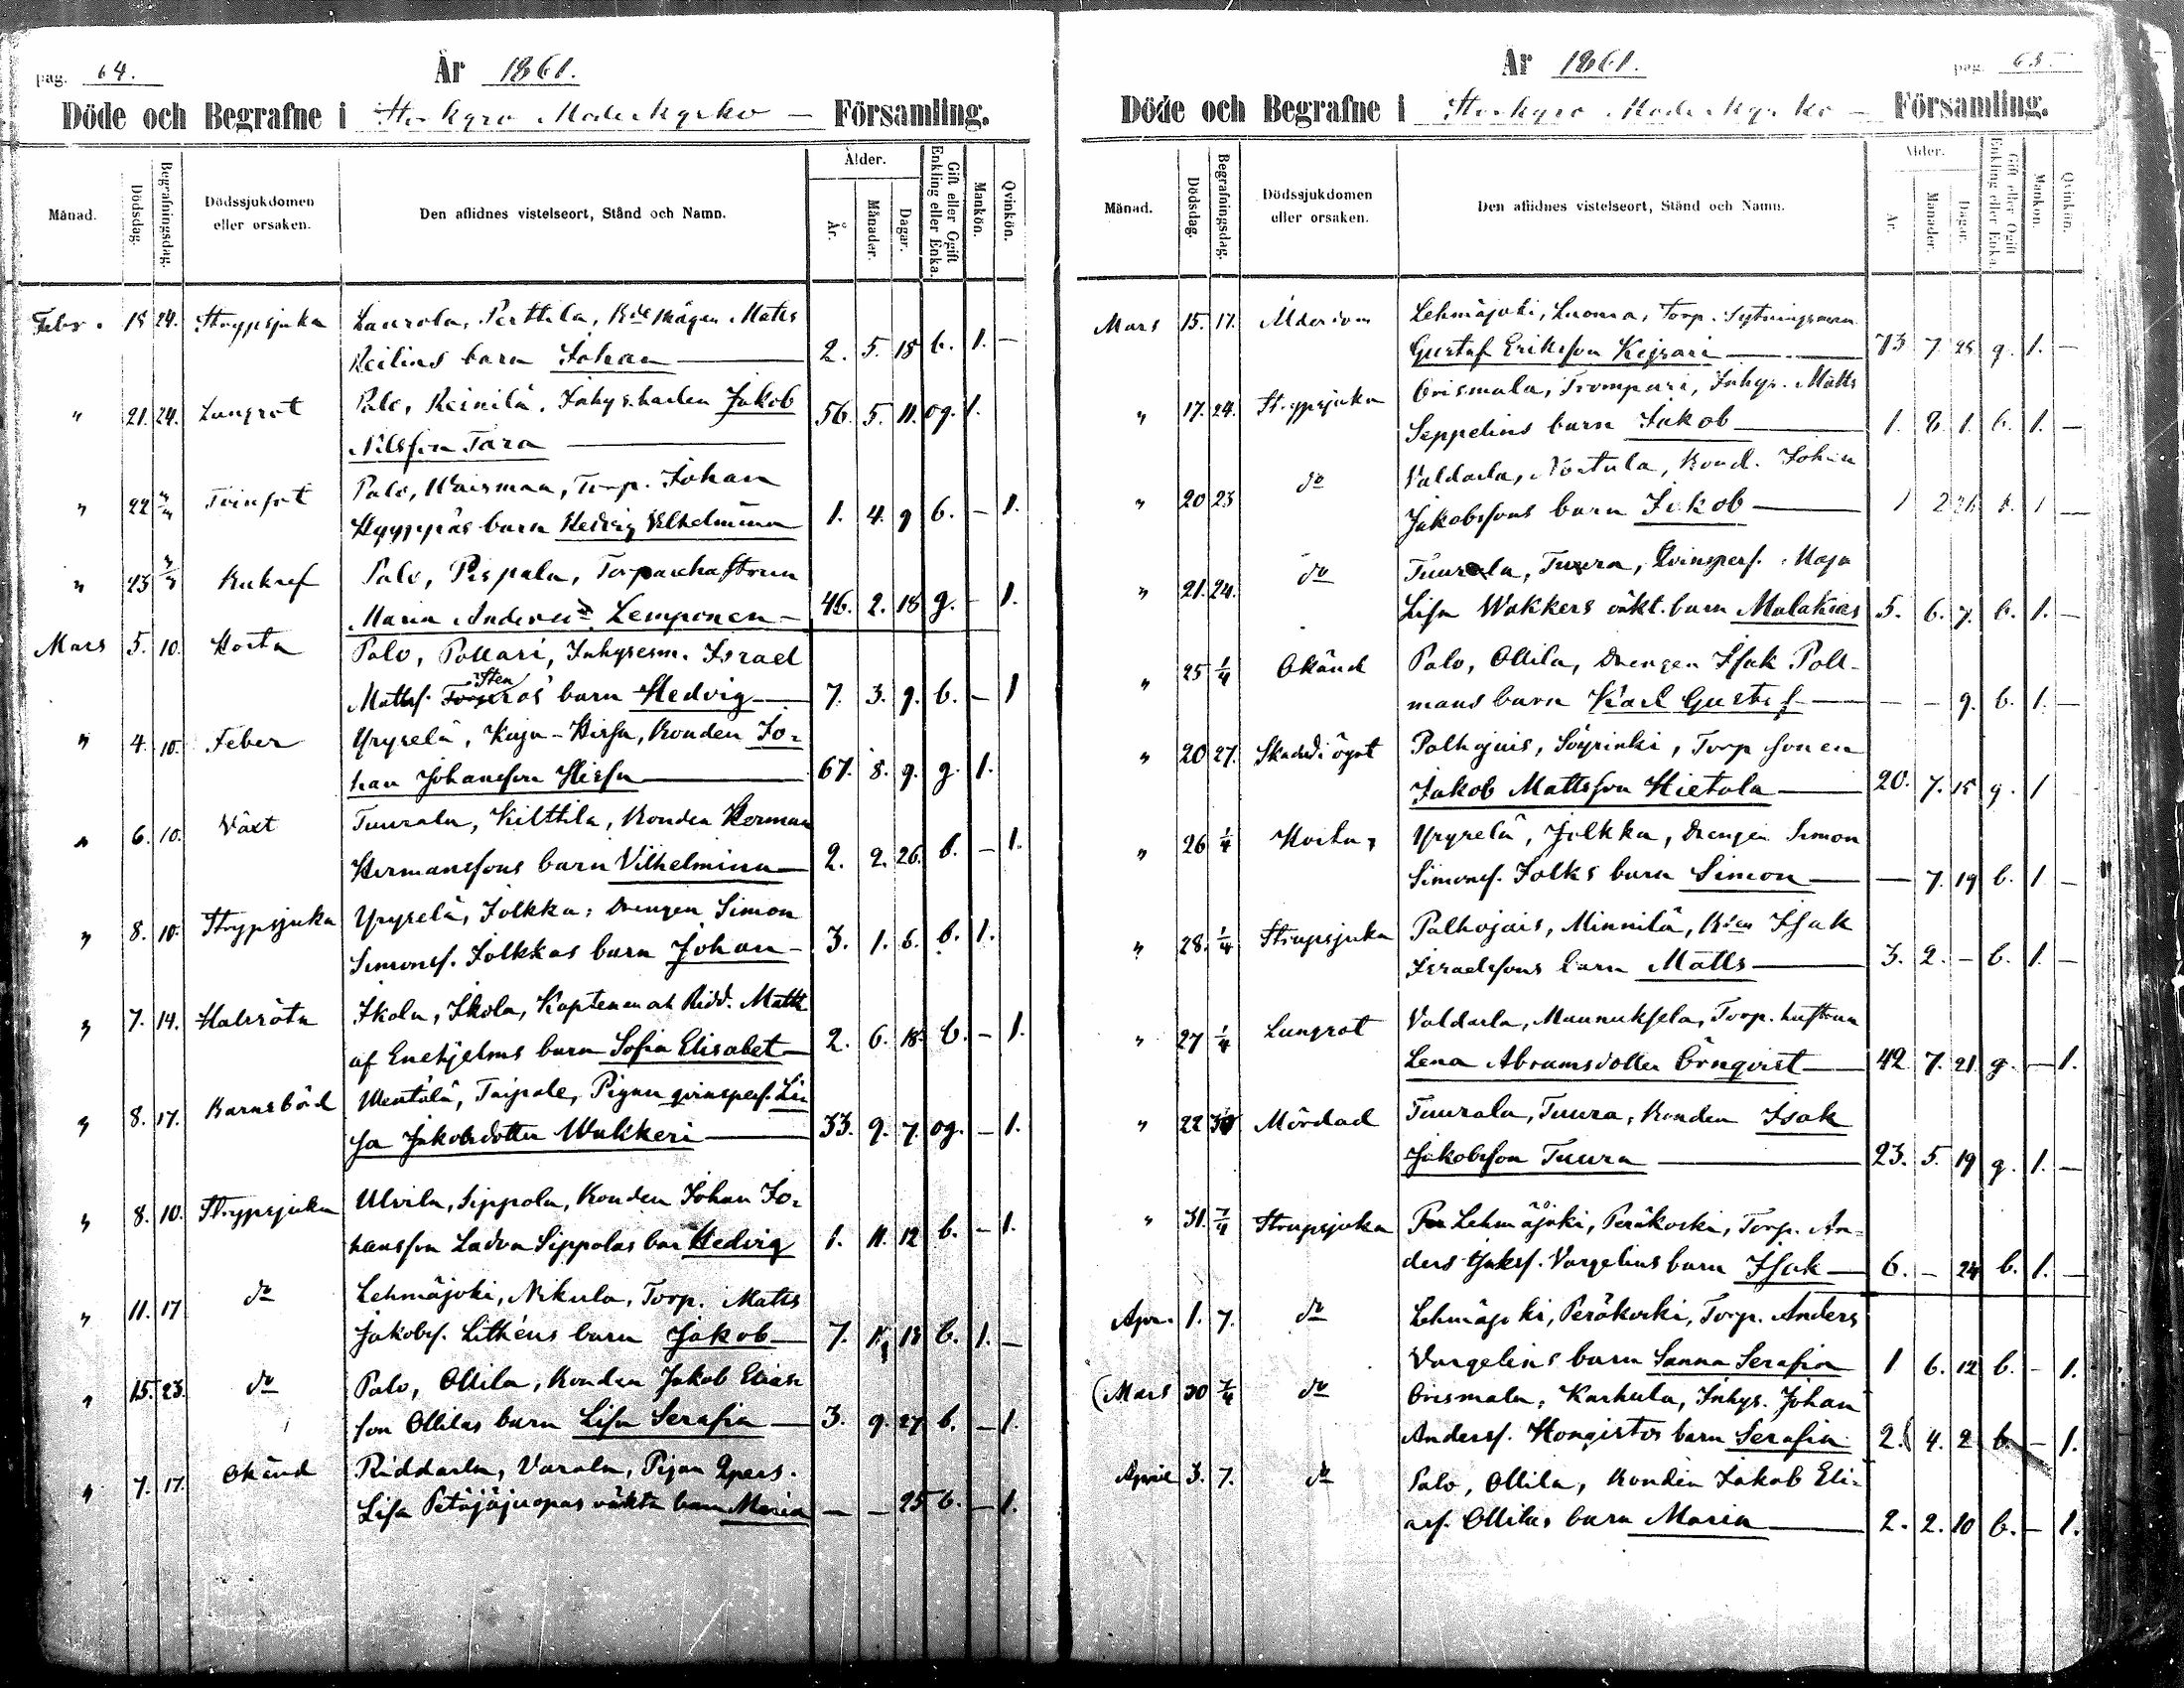 pag. 64.
År 1861.
Döde och Begrafne i Storkyro Moderkyrko - Församling.
Månad. Dödsdag. Begrafningsdag. Dödssjukdomen eller orsaken. Den aflidnes vistelseort, Stånd och Namn. Ålder. År. Månader. Dagar. Gift eller Ogift Enkling eller Enka. Mankön. Qvinkön.
Febr. 18 24. Strypsjuka Laurola, Perttila, Mågen Matts
Keilins barn Johan 2. 5. 18 b. 1. —
" 21. 24. Lungsot Palo, Reinilä, Jakob
Nilsson Tara 56. 5. 11. og. 1.
" 22 Tvinsot Palo, Waismaa, Torp. Johan
Hyyppäs barn Hedvig Vilhelmina 1. 4. 9 b. — 1.
" 23 Palo, Pispala, Torparehustrun
Maria Andersd. Lemponen 46. 2. 18 g. — 1.
Mars 5. 10. Hosta Palo, Pollari, Inhysesm. Israel
Matts. Stenros barn Hedvig 7. 3. 9. b. — 1
" 4. 10. Feber Yryselä, Kaju-Hirsu, Bonden Jo-
han Johansson Hirsu 67. 8. 9. g. 1.
" 6. 10. Växt Tuurala, Kilttila, Bonden Herman
Hermanssons barn Vilhelmina 2. 2. 26. b. — 1.
" 8. 10. Strypsjuka Yryselä, Jolkka, Drengen Simon
Simonss. Jolkkas barn Johan 3. 1. 6. b. 1.
" 7. 14. Halsröta Ikola, Ikola, Kaptenen och Ridd. Matts
af Enehjelms barn Sofia Elisabet 2. 6. 18 b. — 1.
" 8. 17. Barnsbörd Wentälä, Taipale, Pigan qvinspers. Li-
sa Jakobsdotter Wakkeri 33. 9. 7. og. — 1.
" 8. 10. Strypsjuka Ulvila, Sippola, Bonden Johan Jo-
hansson Ladva Sippolas bar Hedvig 1. 11. 12 b. — 1.
" 11. 17 do Lehmäjoki, Nikula, Torp. Matts
Jakobs. Litthéns barn Jakob 7. 13 b. 1. —
" 15. 23. do Palo, Ollila, Bonden Jakob Elias-
son Ollilas barn Lisa Serafia 3. 9. 27 b. — 1.
" 7. 17. Okänd Riddarla, Varala, Pigan Qpers.
Lisa Petäjäjuopas oäkta barn Maria — — 25 b. — 1.
År 1861. pag. 65
Döde och Begrafne i Storkyro Moderkyrko - Församling.
Månad. Dödsdag. Begrafningsdag. Dödssjukdomen eller orsaken. Den aflidnes vistelseort, Stånd och Namn. Ålder. År. Månader. Dagar. Gift eller Ogift Enkling eller Enka. Mankön. Qvinkön.
Mars 15. 17. Ålderdom Lehmäjoki, Luoma, Torp. Sytningsman
Gustaf Eriksson Kejsari 73 7 25 g. 1. —
" 17. 24. Strypsjuka Orismala, Trompari, Inhys. Matts
Seppelins barn Jakob 1. 8. 1. b. 1. —
" 20 23 do Valdarla, Bond. Johan
Jakobssons barn Jakob 1 2 26 b. 1 —
" 21. 24. do Tuurala, Tuura, Qvinspers. Maja
Lisa Wakkers oäkt. barn Malakias 5. 6. 7. b. 1. —
" 25 1/4 Okänd Palo, Ollila, Drengen Isak Poll-
mans barn Karl Gustaf — — 9. b. 1. —
" 20 27. Palhojais, Söyrinki, Torp sonen
Jakob Mattsson Hietala 20. 7. 15 g. 1
" 26 1/4 Hosta Yryselä, Jolkka, Drengen Simon
Simons. Jolks barn Simon — 7. 19 b. 1. —
" 28. 1/4 Strupsjuka Palhojais, Minnilä, Isak
Israelssons barn Matts 3. 2. — b. 1. —
" 27 1/4 Lungsot Valdarla, Maunuksela, Torp. hustrun
Lena Abramsdotter Örnqvist 42 7. 21 g. — 1.
" 22 Mördad Tuurala, Tuura, Bonden Isak
Jakobsson Tuura 23. 5. 19 g. 1. —
" 31. 7/4 Strupsjuka Lehmäjoki, Peräkoski, Torp. An-
ders Isaks. Vargelins barn Isak 6. — 24 b. 1. —
Apr. 1. 7. do Lehmäjoki, Peräkoski, Torp. Anders
Vargelins barn Sanna Serafia 1 6. 12 b. — 1.
(Mars 30 7/4 do Orismala, Karhula, Inhys. Johan
Anderss. Hongistos barn Serafia 2. 4. 2 b. — 1.
April 3. 7. do Palo, Ollila, Bonden Jakob Eli-
ass. Ollilas barn Maria 2. 2. 10 b. — 1.